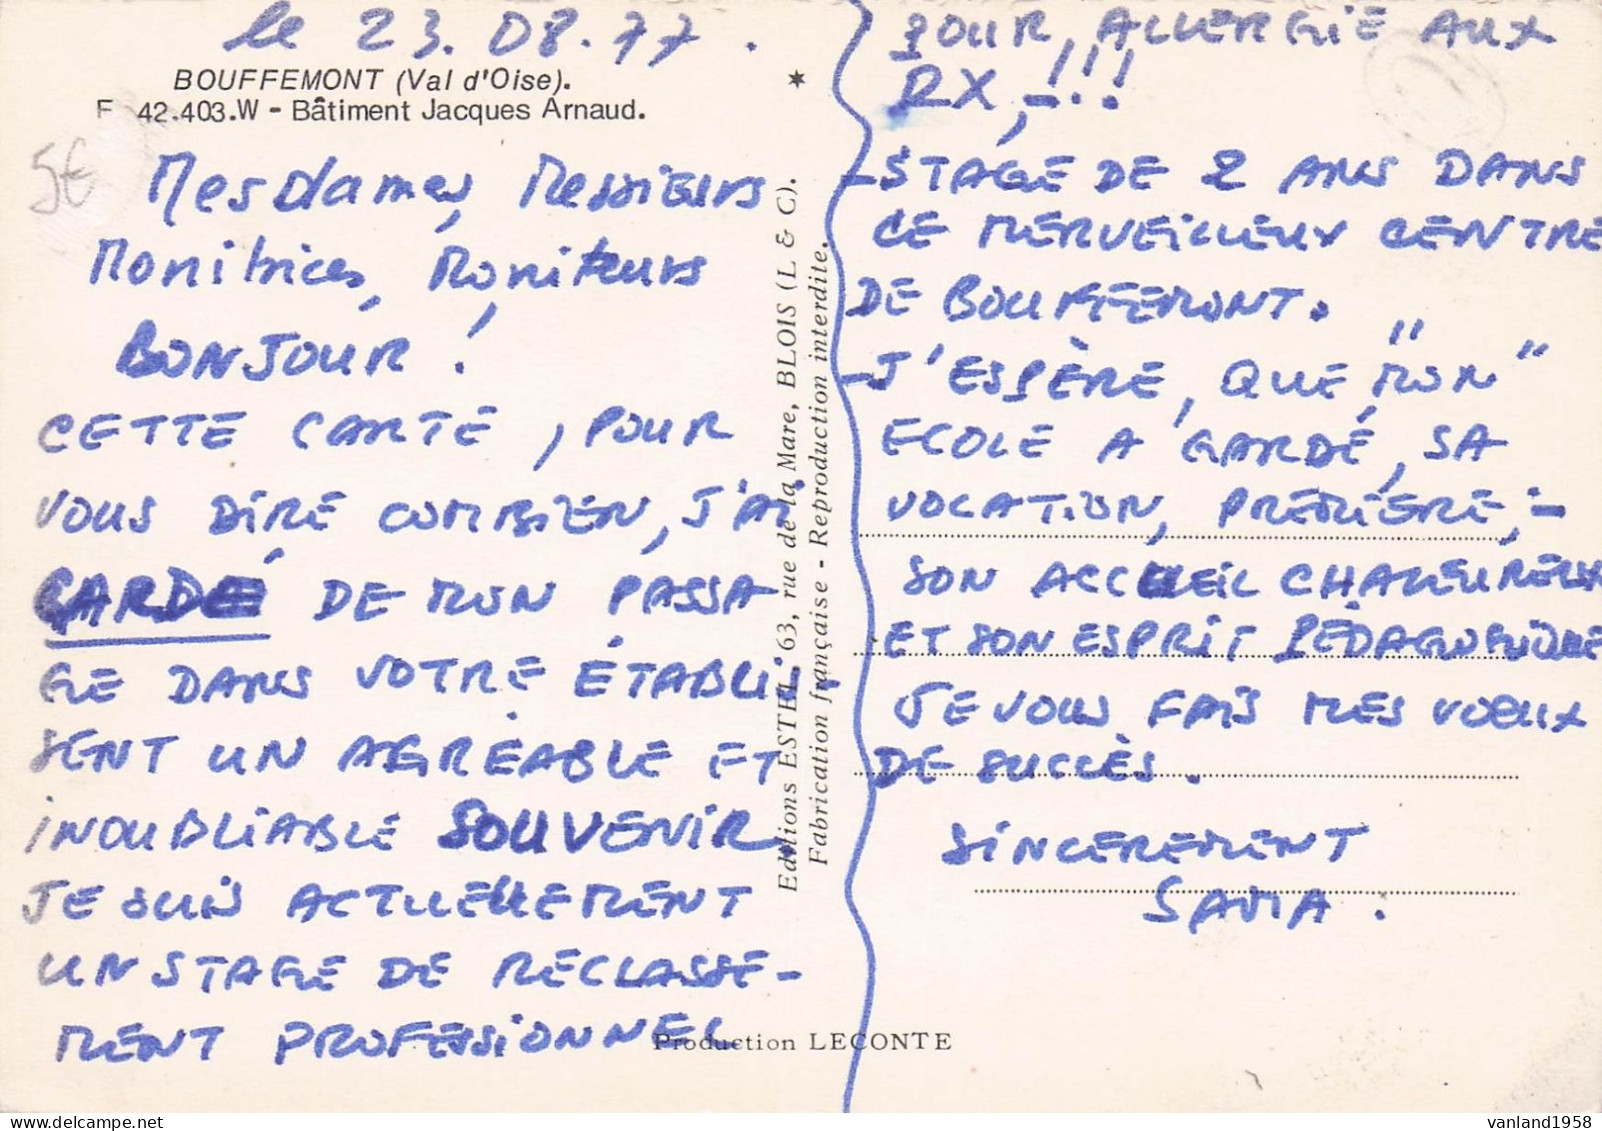 le 23.08.77.
BOUFFEMONT (Val d'Oise).
42.403.W - Bâtiment Jacques Arnaud.
5€
Mesdames, Messieurs
Monitrices, Moniteurs
BONJOUR !
CETTE CARTE, POUR
VOUS DIRE COMBIEN, J'AI
GARDÉ DE MON PASSA-
GE DANS VOTRE ÉTABLIS-
SENT UN AGREABLE ET
INOUBLIABLE SOUVENIR.
JE SUIS ACTUELLEMENT
UN STAGE DE RECLASSE-
MENT PROFESSIONNEL
Production LECONTE
Editions ESTEL, 63, rue de la Mare, BLOIS (L & C).
Fabrication française - Reproduction interdite.
POUR, ALLERGIE AUX
RX, !!!
- STAGE DE 2 ANS DANS
CE MERVEILLEUX CENTRE
DE BOUFFEMONT.
- J'ESPÈRE, QUE, "MON"
ECOLE A GARDÉ, SA
VOCATION, PREMIERE, -
SON ACCUEIL CHALEUREUX
ET SON ESPRIT PÉDAGOGIQUE
JE VOUS FAIS MES VOEUX
DE SUCCÈS.
SINCEREMENT
vanland1958